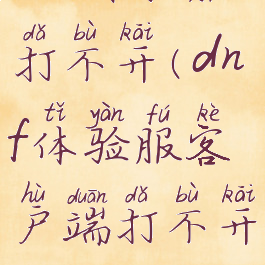 dǎ bù kāi
打不开(dn
tǐ yàn fú kè
f体验服客
hù duān dǎ bù kāi
户端打不开